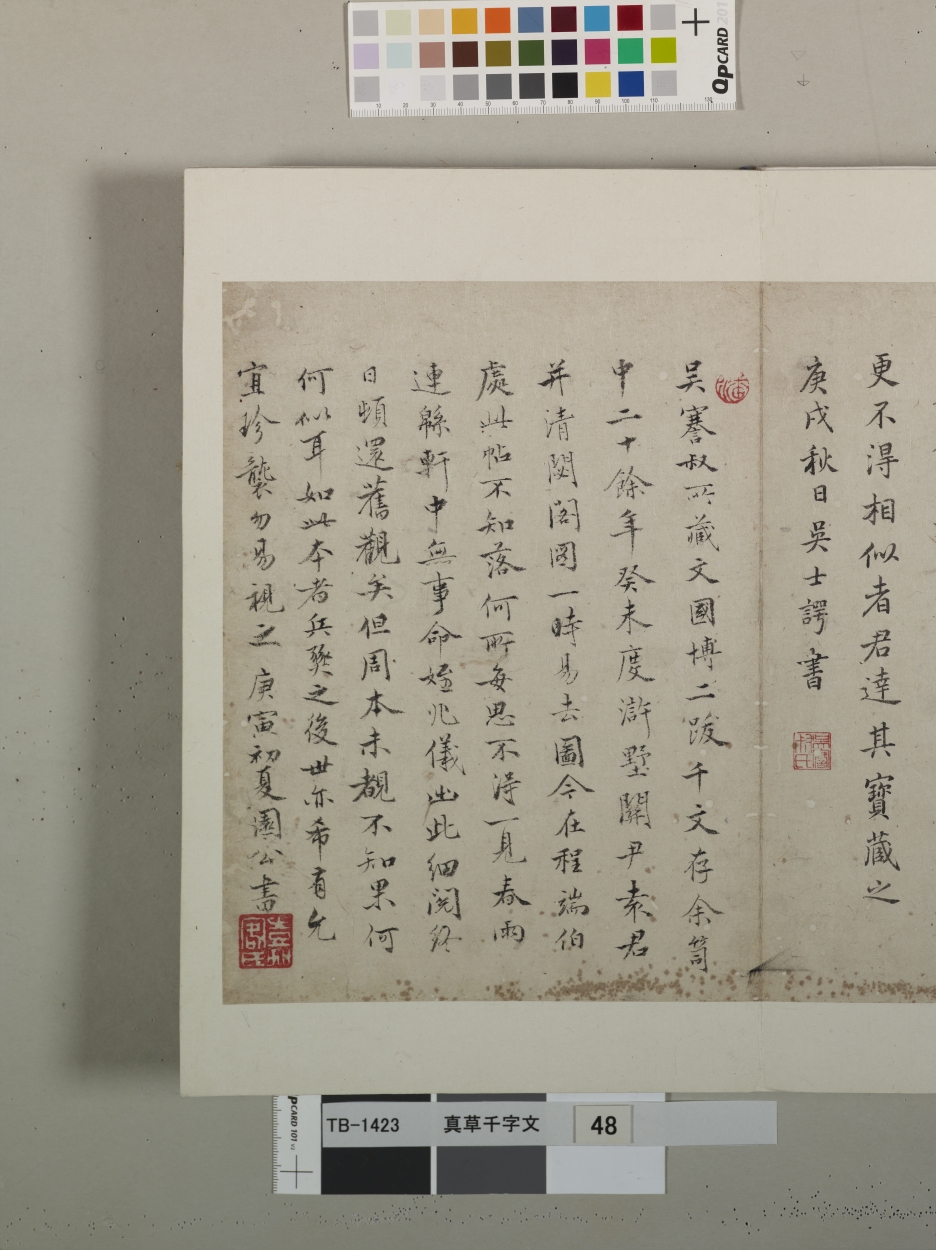 更不得相似者君達其寶藏之
庚戌秋日吳士諤書
吴騫叔所藏文國博二跋千文存余笥
中二十餘年癸未度滸墅關尹袁君
并清閟閣圖一時易去圖今在程端伯
處此帖不知落何所每思不得一見春雨
連緜軒中無事命姪兆儀出此細閱終
日頓還舊觀矣但周本未覩不知果何
何似耳如此本者兵燹之後世亦希有允
宜珍襲勿易視之 庚寅初夏園公書
QPCARD 201
10 20 30 40 50 60 70 80 90 100 110 120
QPCARD 101
TB-1423 真草千字文 48